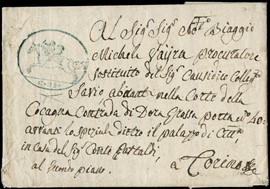 Al Sig.r Sig.r Not.o Biaggio
Michele Fayra Procuratore
sostituto del Sig.r Causidico Colleg.to
Savio abitante nella Corte della
Cocagna Contrada di Dora Grossa porta n.o 40
accanto lo speziale dietro il palazzo di Città
in casa del Sig.r Conte
al primo piano.
a Torino